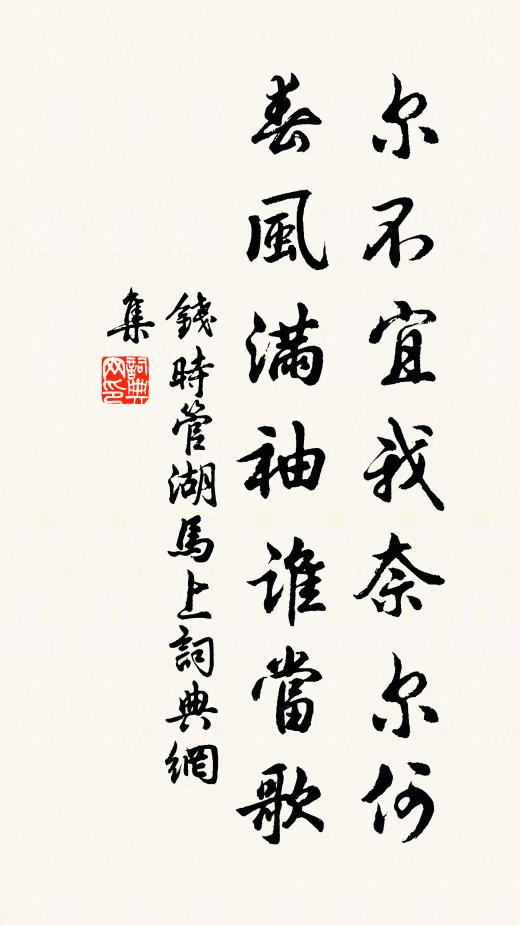 尔不宜我奈尔何
春風满袖誰當歌
錢時管湖馬上詞典網
集
詞典网印